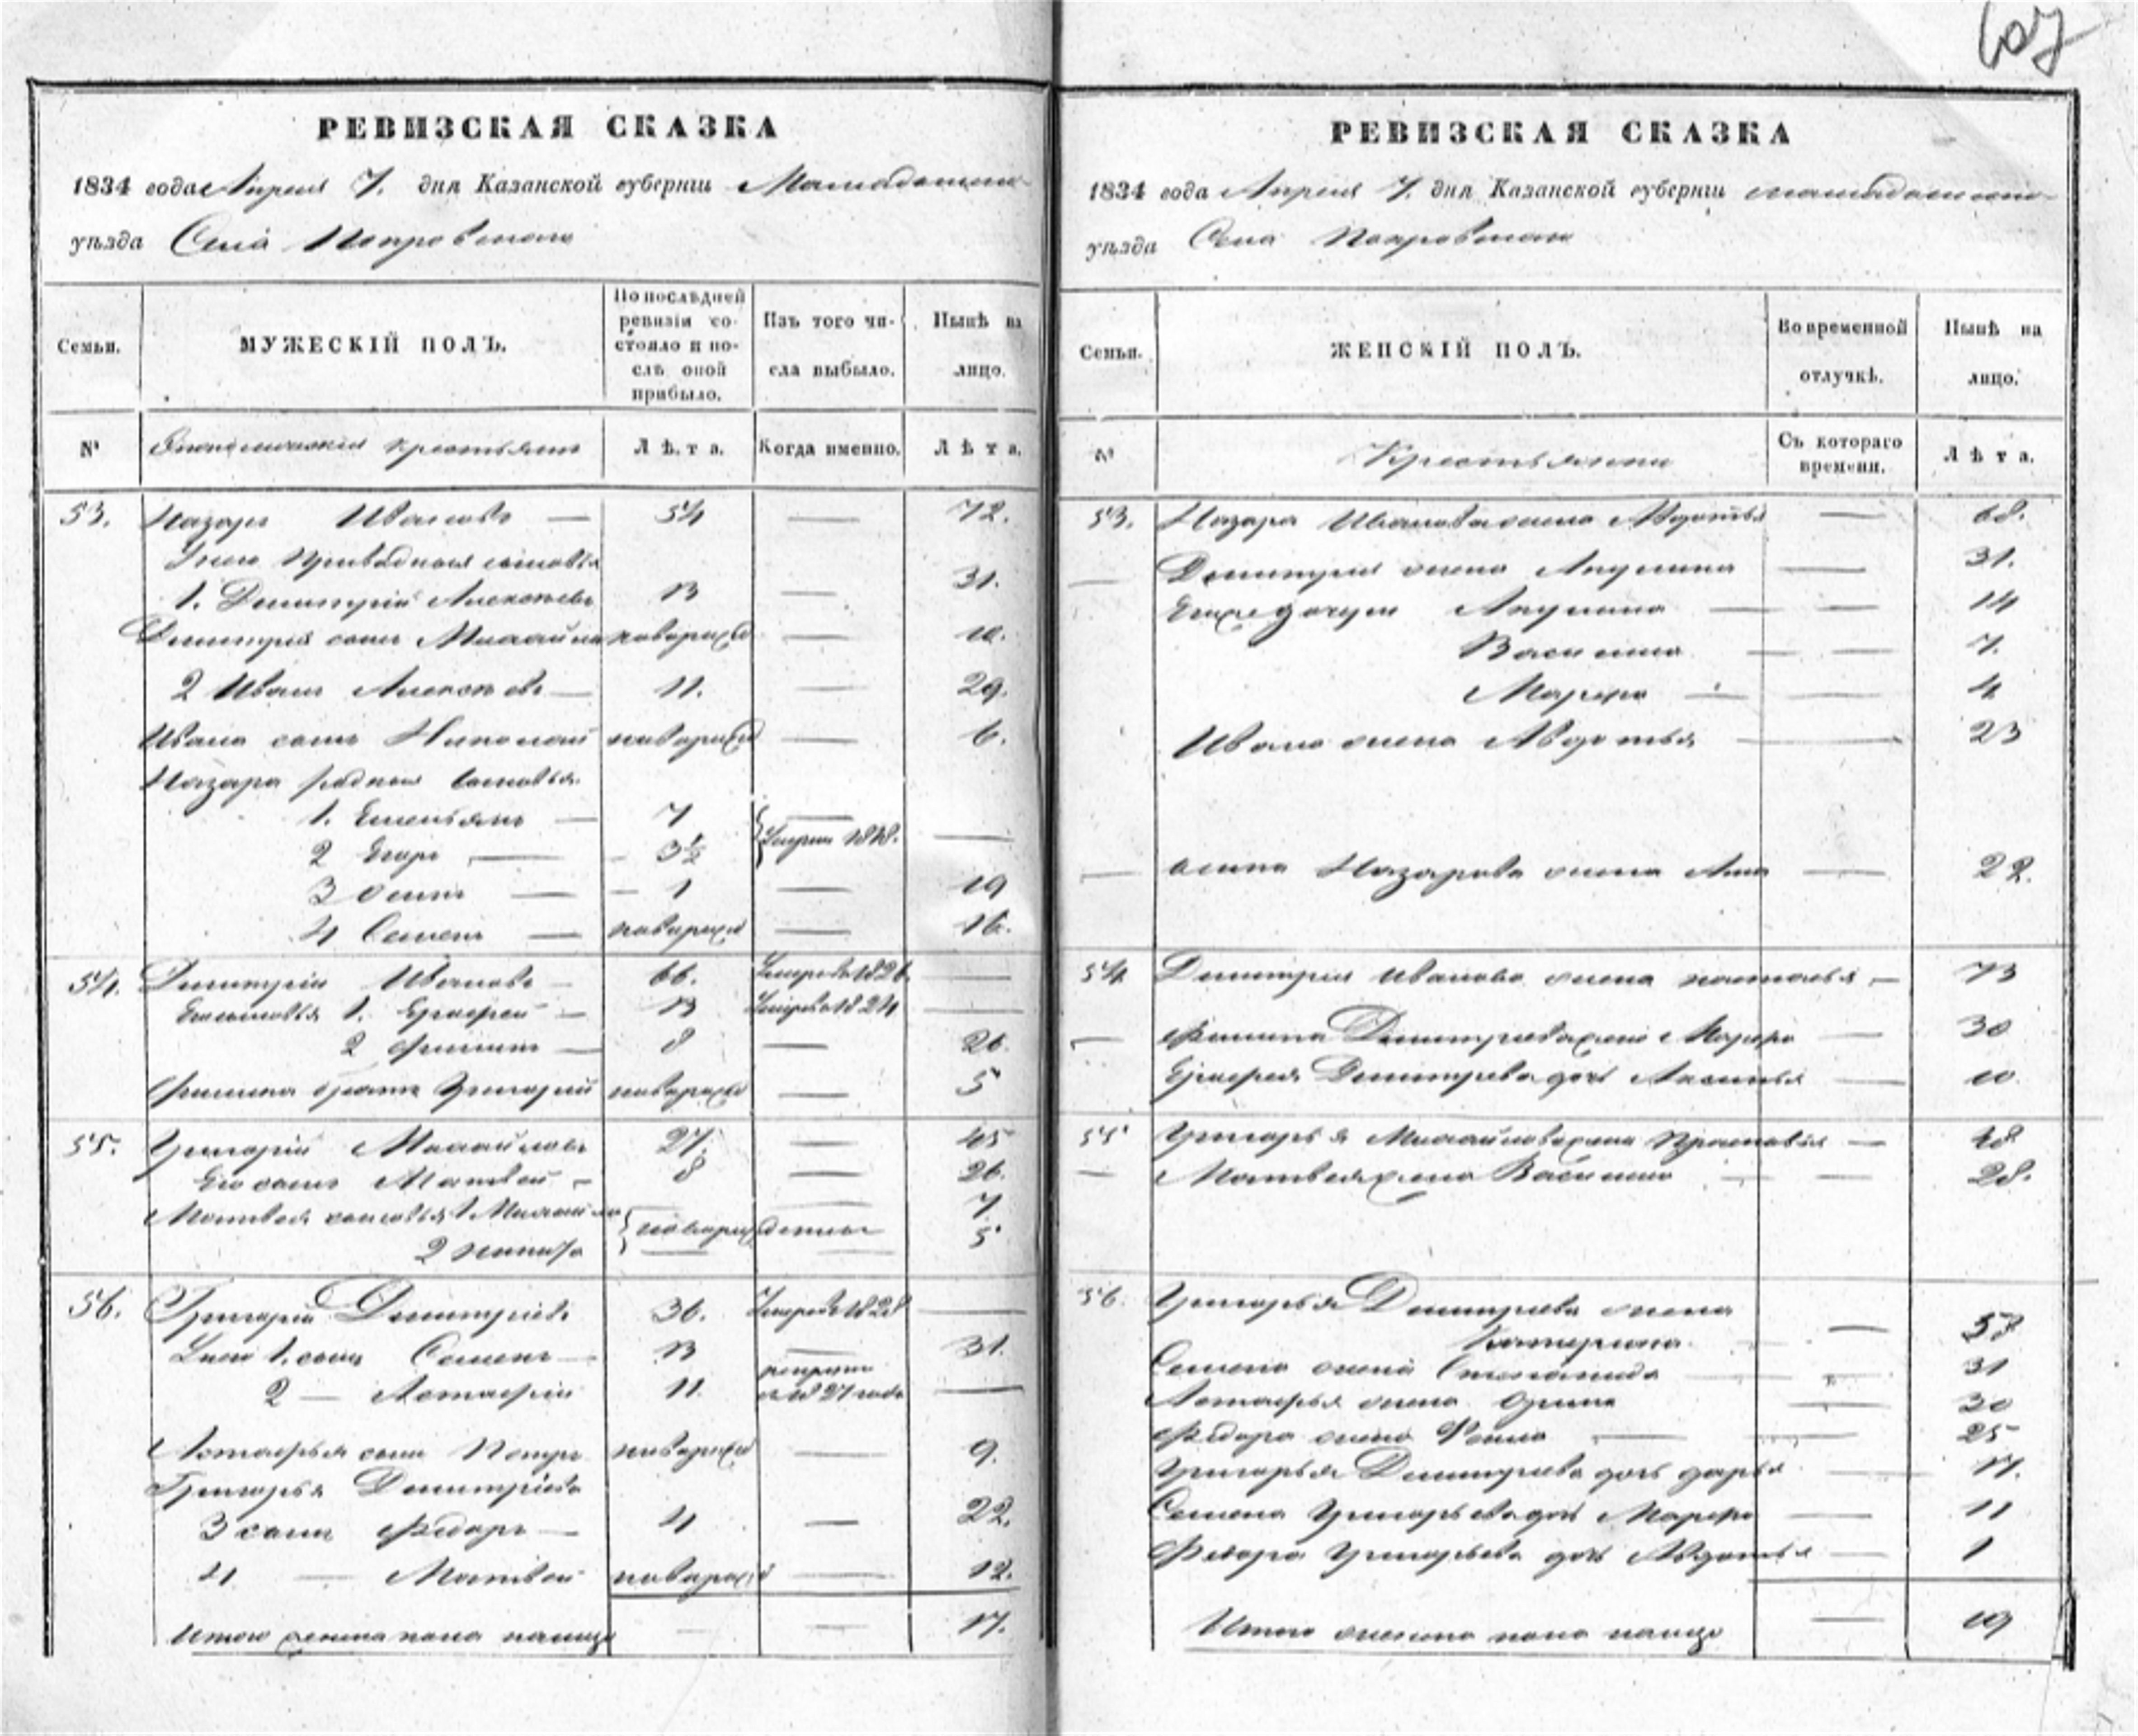 607
РЕВИЗСКАЯ СКАЗКА
1834 года Апреля 7. дня Казанской губерніи Мамадышскаго
уѣзда Села Покровскаго
Семьи.
МУЖЕСКІЙ ПОЛЪ.
По послѣдней ревизіи состояло и послѣ оной прибыло.
Изъ того числа выбыло.
Нынѣ на лицо.
№ Экономическия крестьяне Лѣта. Когда именно. Лѣта.
53. Назаръ Ивановъ — 54 — 72.
У него приводныя сыновья
1. Дмитрій Алексѣевъ 13 — 31.
Дмитрия сынъ Михайла новорожд — 10.
2 Иванъ Алексѣевъ — 11. — 29.
Ивана сынъ Николай новорожд — 6.
Назара родныя сыновья
1. Емельянъ — 7 —
2 Егоръ — 3½ Умерли 1818. —
3 Осипъ — 1 — 19
4 Семенъ — новорожд — 16.
54. Дмитрій Ивановъ — 66. Умеръ въ 1826. —
Его сыновья 1. Ерофей — 13 Умеръ въ 1824 —
2 Филипъ — 8 — 26.
Филипа братъ Григорій новорожд — 5
55. Григорій Михайловъ 27. — 45
Его сынъ Матвей — 8 — 26.
Матвея сыновья 1 Михайла — 7
2 Никита новорожденные — 5
56. Григорій Дмитріевъ 36. Умеръ въ 1828 —
У него 1. сынъ Семенъ — 13 — 31.
2 — Астафій 11. рекрутъ съ 1827 года —
Астафья сынъ Петръ новорожд — 9.
Григорья Дмитріева
3 сынъ Федоръ — 4 — 22.
4 — Матвей новорожд — 12.
Итого мужеска пола налицо — — 17.
РЕВИЗСКАЯ СКАЗКА
1834 года Апреля 7. дня Казанской губерніи мамадышскаго
уѣзда Села Покровскаго
Семьи.
ЖЕНСКІЙ ПОЛЪ.
Во временной отлучкѣ.
Нынѣ на лицо.
№ Крестьянки Съ котораго времени. Лѣта.
53. Назара Иванова жена Авдотья — 68.
Дмитрия жена Акулина — 31.
Ихъ дочери Акулина — — 14
Василиса — — 7.
Марфа — — 4
Ивана жена Авдотья — 23
— Осипа Назарова жена Анна — 22.
54 Дмитрия Иванова жена наталья — 73
— Филипа Дмитриева жена Марфа — 30
Ерофея Дмитриева дочь Аксинья — 10.
55 Григорья Михайлова жена Прасковья — 48
— Матвея жена Василиса — — 28.
56. Григорья Дмитриева жена
Катерина — 57
Семена жена Степанида — 31
Астафья жена Орина — 30
Федора жена — — 25
Григорья Дмитриева дочь дарья — 17.
Семена Григорьева дочь Марфа — 11
Федора Григорьева дочь Авдотья — 1
Итого женска пола налицо — 19